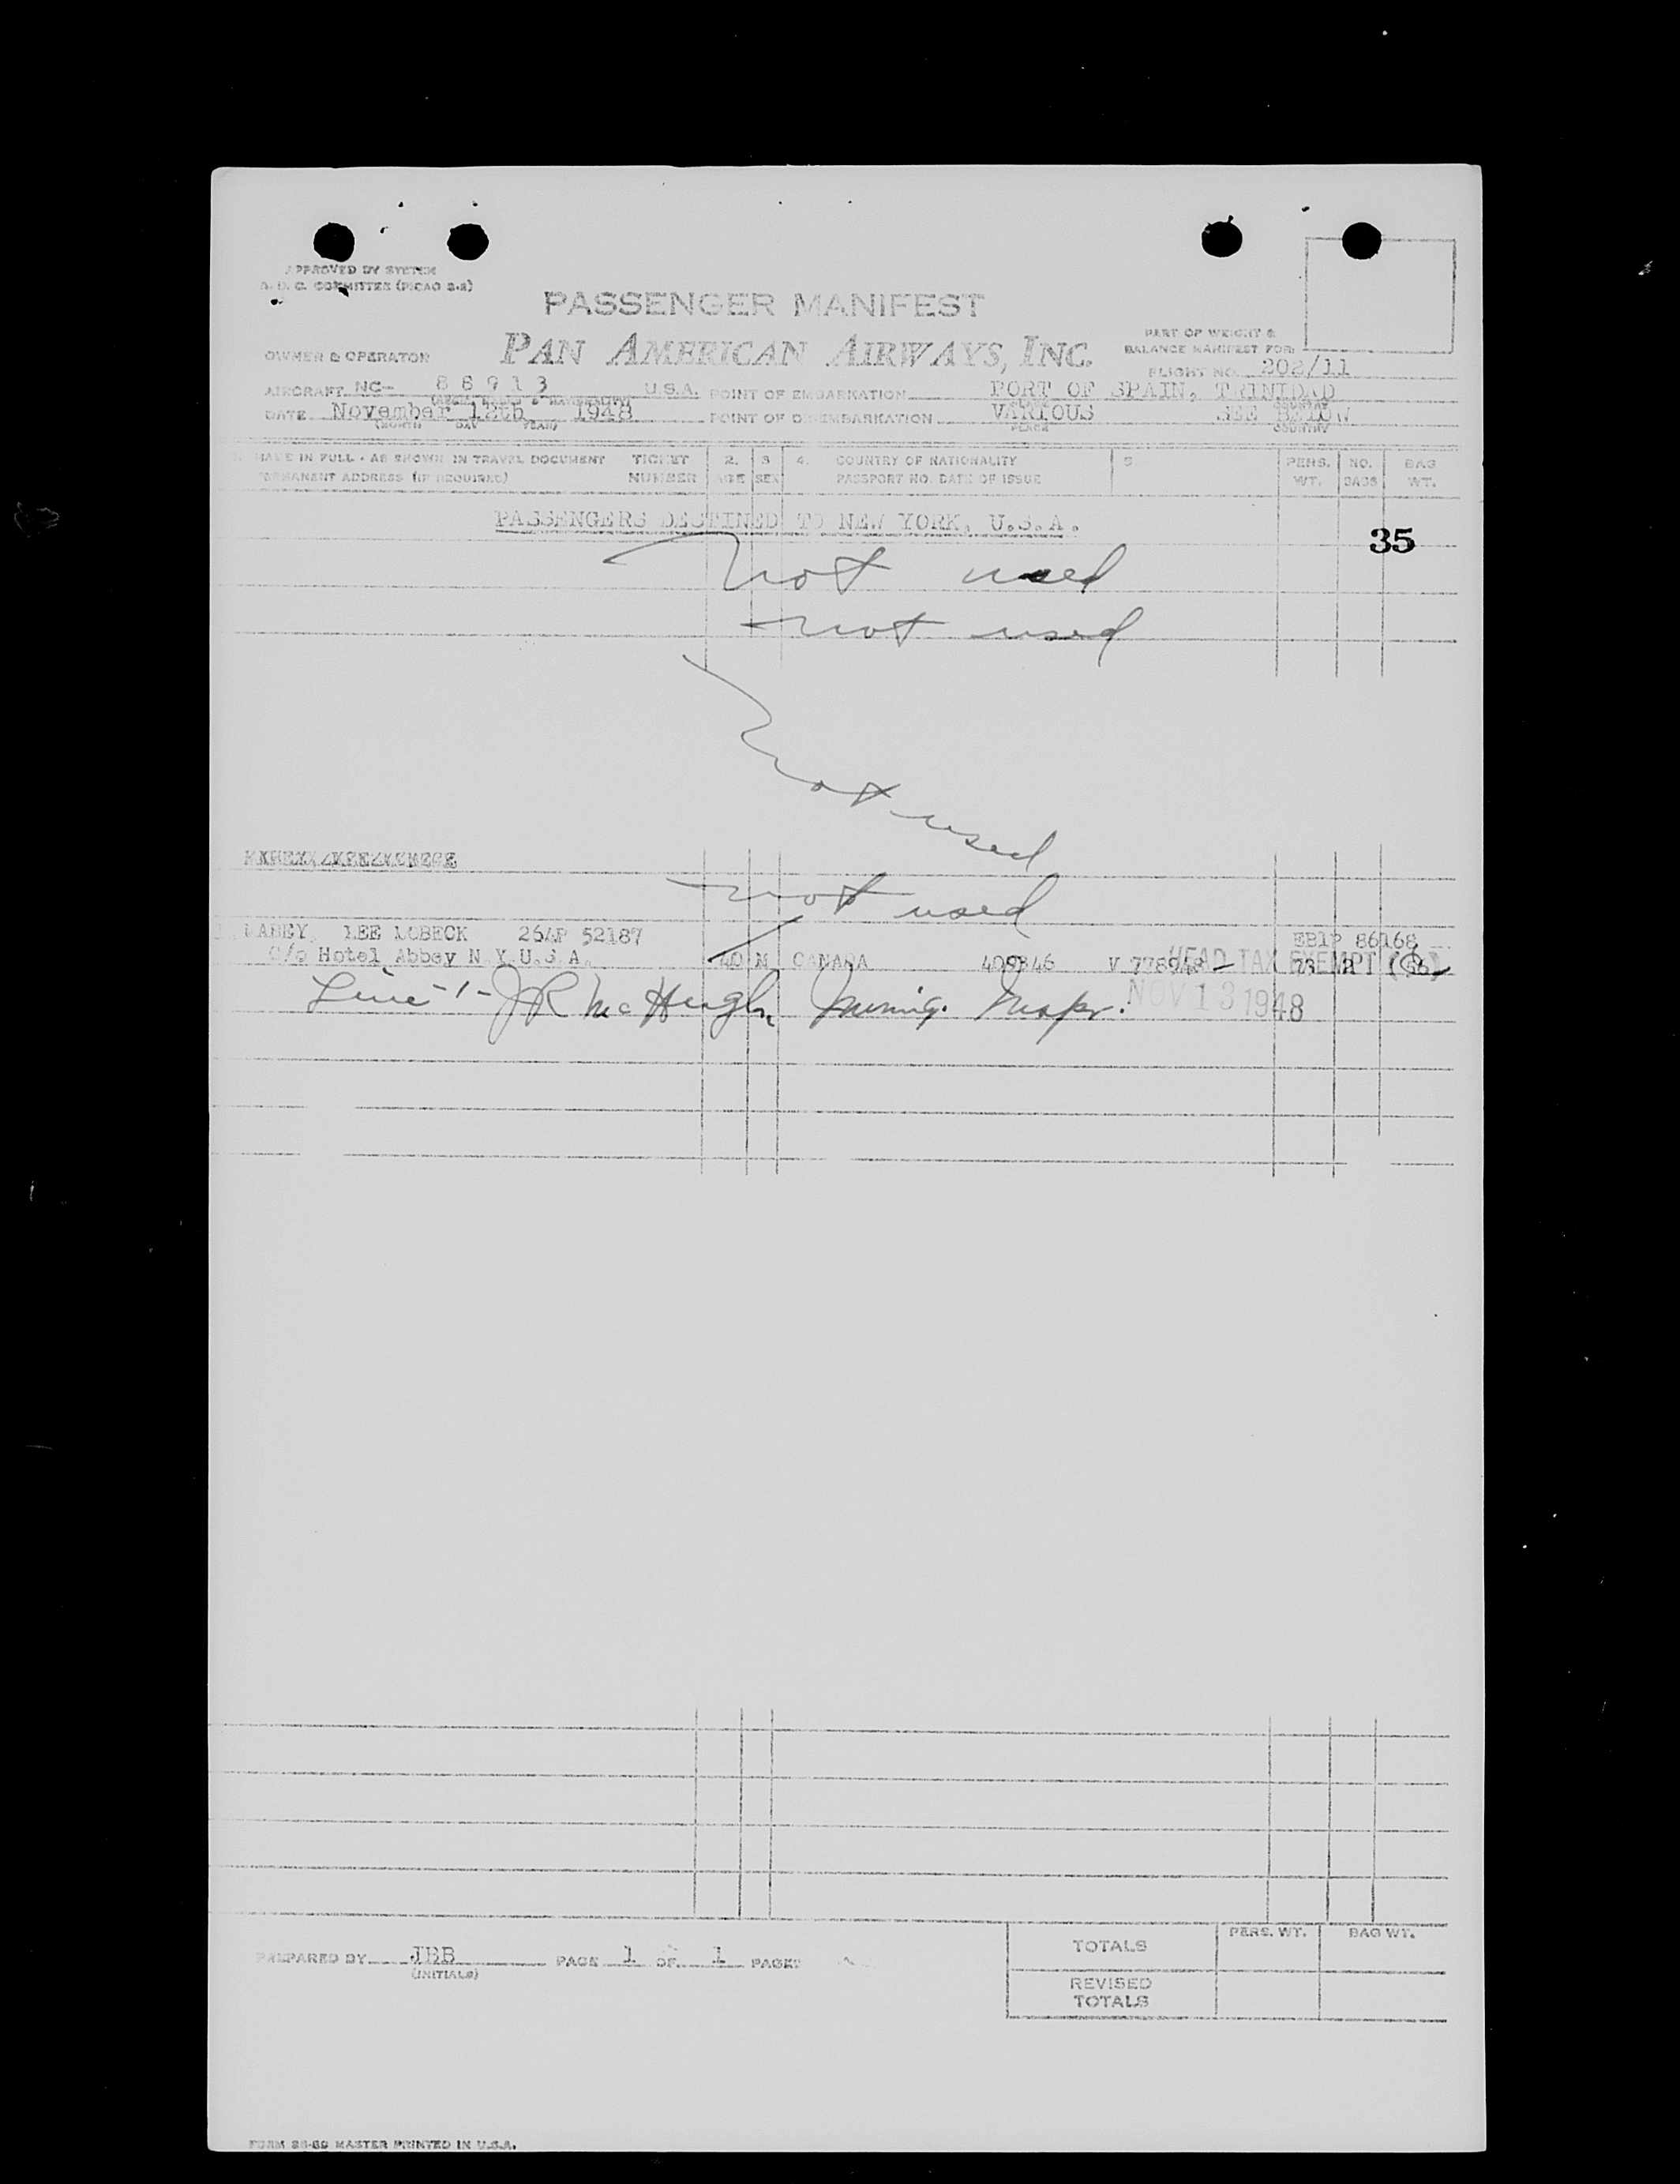 APPROVED BY SYSTEM
COMMITTEE (PICAO 2-2)
PASSENGER MANIFEST
PAN AMERICAN AIRWAYS, INC.
PART OF WEIGHT &
BALANCE MANIFEST FOR:
OWNER & OPERATOR
FLIGHT NO. 202/11
AIRCRAFT NC- 88913 U.S.A. POINT OF EMBARKATION PORT OF SPAIN, TRINIDAD
DATE November 12th 1948 POINT OF DISEMBARKATION VARIOUS SEE BELOW
(MONTH DAY YEAR) PLACE COUNTRY
NAME IN FULL - AS SHOWN IN TRAVEL DOCUMENT TICKET 2. 3 4. COUNTRY OF NATIONALITY 5 PERS. NO. BAG
PERMANENT ADDRESS (IF REQUIRED) NUMBER AGE SEX PASSPORT NO. DATE OF ISSUE WT. BAGS WT.
PASSENGERS DESTINED TO NEW YORK, U.S.A.
35
Not used
Not used
Not used
Not used
LEE LOBECK 26AP 52187 86168
C/o Hotel Abbey N.Y.U.S.A. 40 M CANADA V HEAD TAX EXEMPT
Line -1- JR McHugh Immig. Inspr. NOV 13 1948
PREPARED BY JBB PAGE 1 OF 1 PAGES
(INITIALS)
PERS. WT. BAG WT.
TOTALS
REVISED
TOTALS
MASTER PRINTED IN U.S.A.